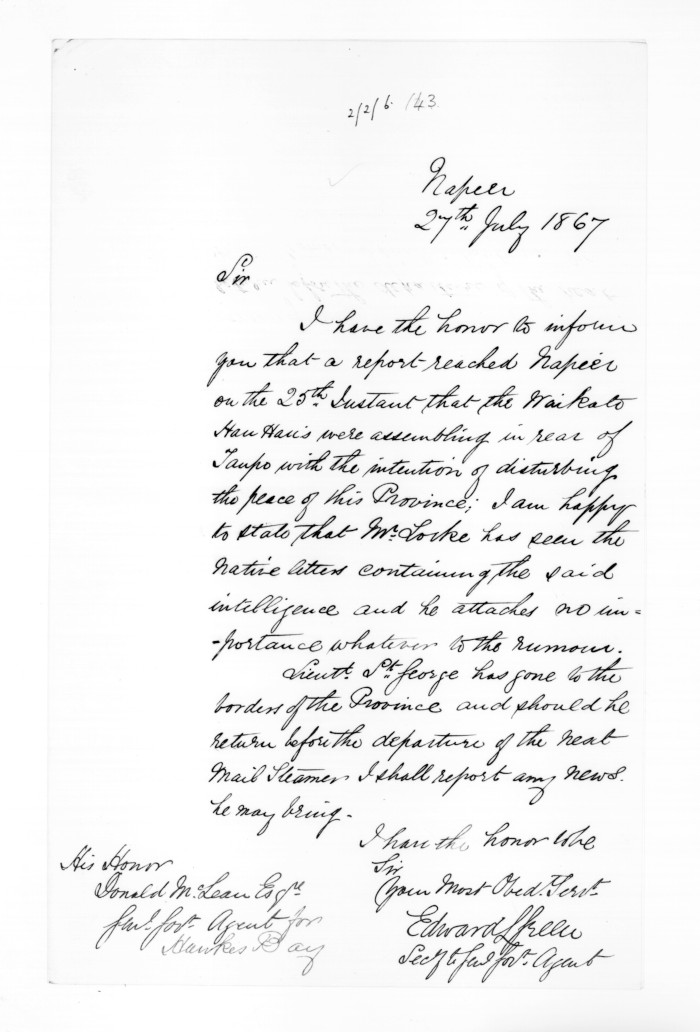 2/2/6. 143.
Napier
27th July 1867
Sir
I have the honor to inform
you that a report reached Napier
on the 25th Instant that the Waikato
Hau Hau's were assembling in rear of
Taupo with the intention of disturbing
the peace of this Province; I am happy
to state that Mr. Locke has seen the
Native letters containing the said
intelligence and he attaches no im=
-portance whatever to the rumour.
Lieut. St. George has gone to the
borders of the Province and should he
return before the departure of the next
Mail Steamer I shall report any news
he may bring.
I have the honor to be
Sir
Your Most Obedt. Servt.
Edward L Green
Secy to Genl. Govt. Agent
His Honor
Donald McLean Esqre.
Genl. Govt. Agent for
Hawkes Bay